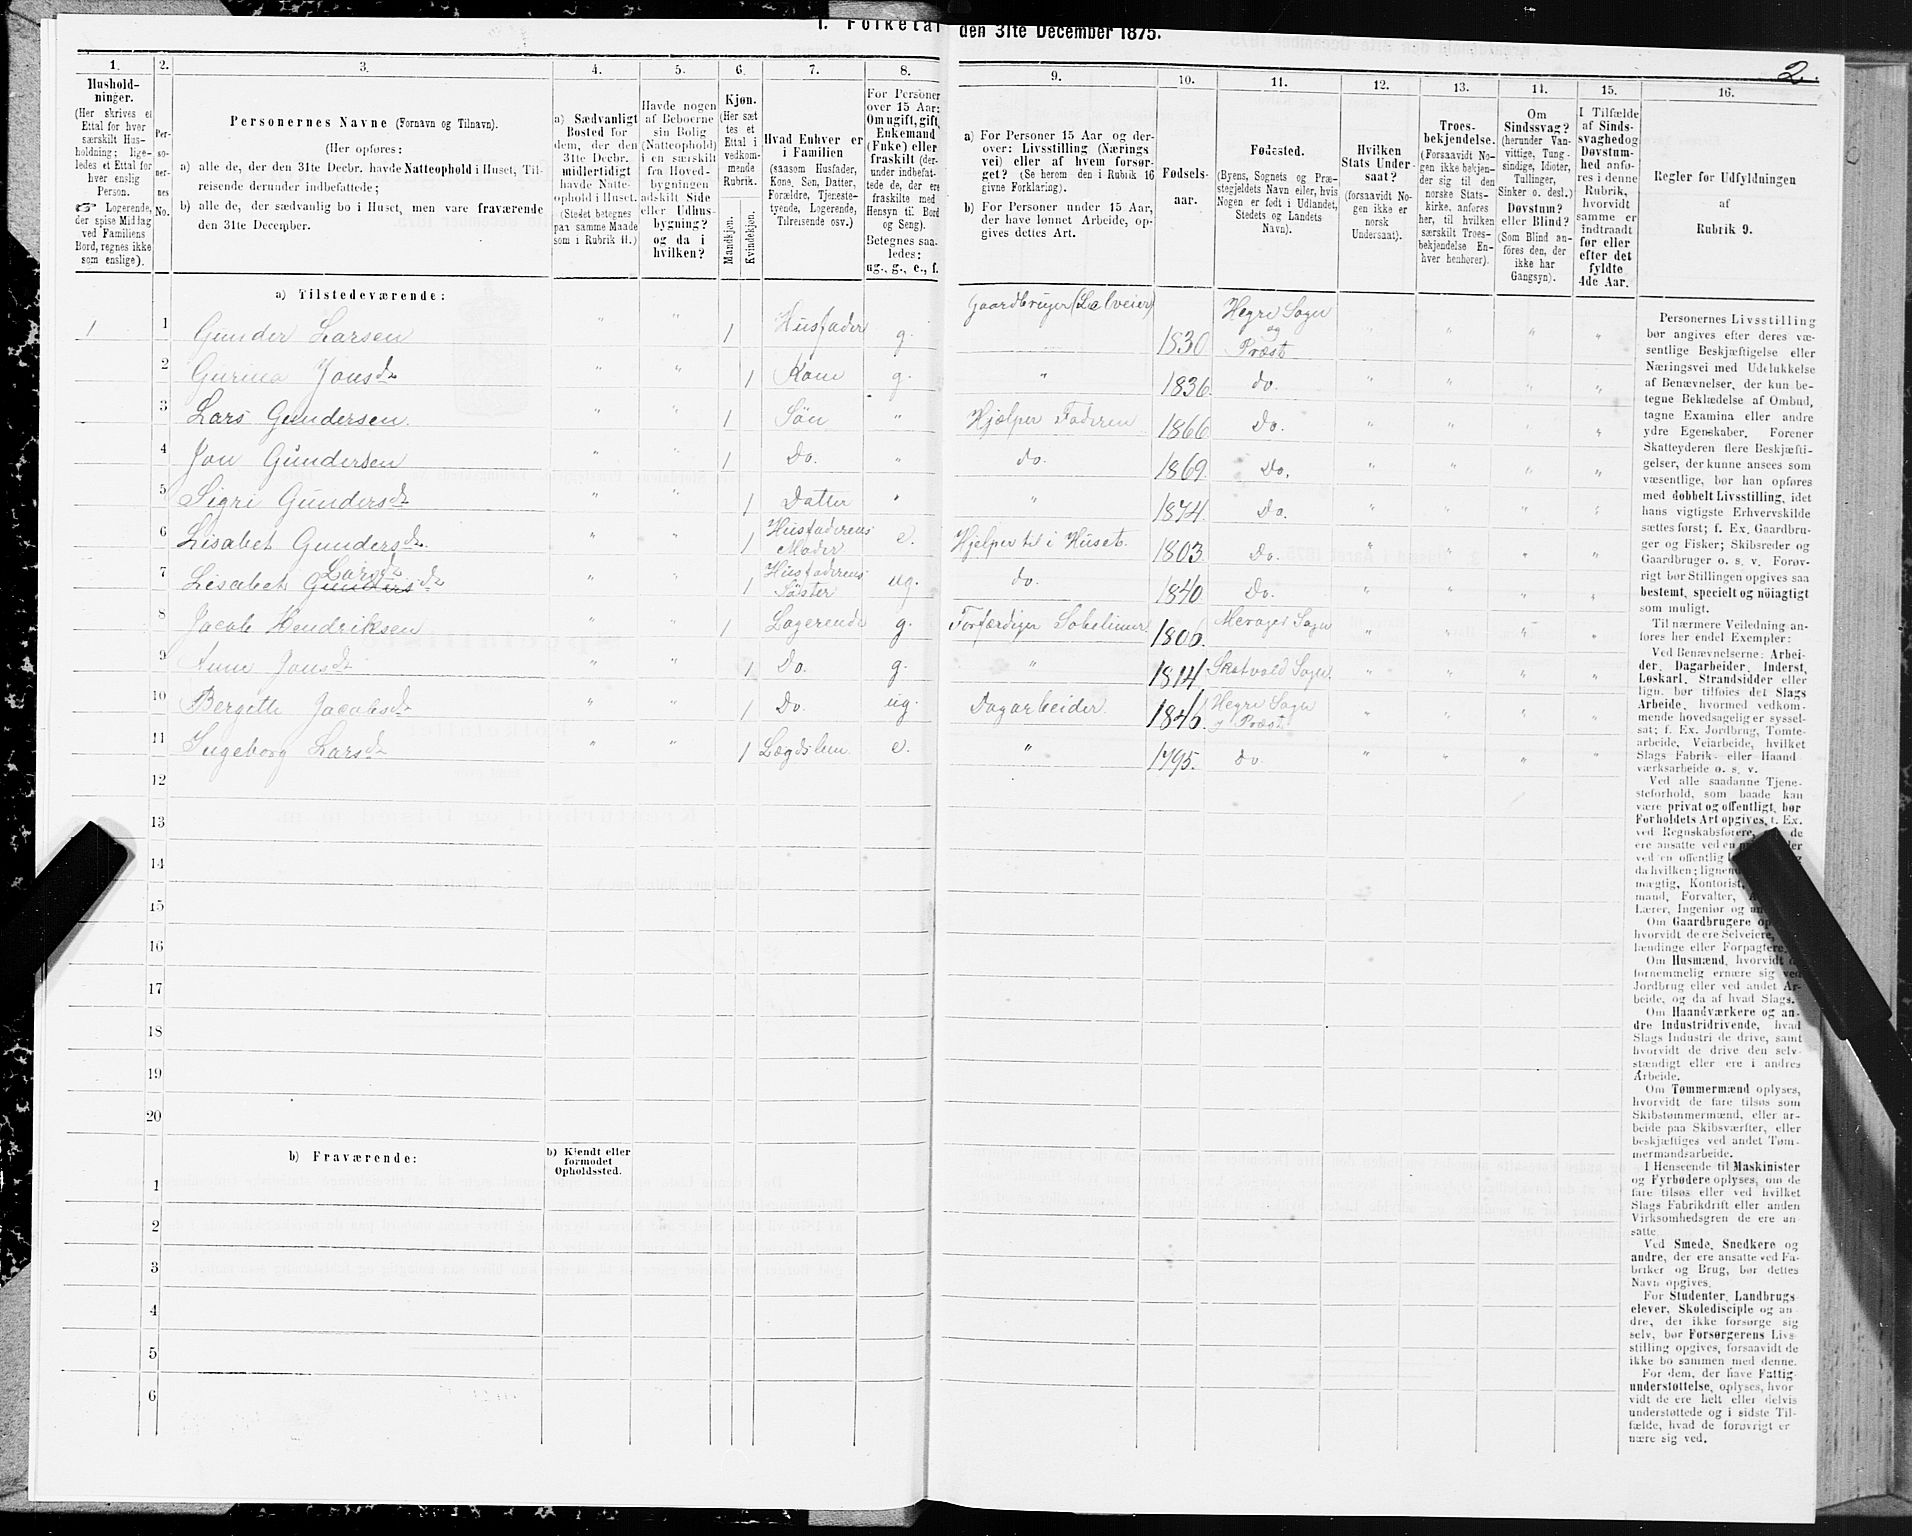 I. Folketal den 31te December 1875.
2.
1. 2. 3. 4. 5. 6. 7. 8. 9. 10. 11. 12. 13. 14. 15. 16.
Hushold-
ninger.
(Her skrives et
Ettal for hver
særskilt Hus-
holdning; lige-
ledes et Ettal for
hver enslig
Person.
☞ Logerende,
der spise Middag
ved Familiens
Bord, regnes ikke
som enslige).
Per-
so-
ner-
nes
No.
Personernes Navne (Fornavn og Tilnavn).
(Her opføres:
a) alle de, der den 31te Decbr. havde Natteophold i Huset, Til-
reisende derunder indbefattede;
b) alle de, der sædvanlig bo i Huset, men vare fraværende
den 31te December.
a) Sædvanligt
Bosted for
dem, der den
31te Decbr.
midlertidigt
havde Natte-
ophold i Huset.
(Stedet betegnes
paa samme Maade
som i Rubrik 11.)
Havde nogen
af Beboerne
sin Bolig
(Natteophold)
i en særskilt
fra Hoved-
bygningen
adskilt Side
eller Udhus-
bygning?
og da i
hvilken?
Kjøn.
(Her sæt
tes et
Ettal i
vedkom-
mende
Rubrik.
Mandkjøn.
Kvindekjøn.
Hvad Enhver er
i Familien
(saasom Husfader,
Kone, Søn, Datter,
Forældre, Tjeneste-
tyende, Logerende,
Tilreisende osv.)
For Personer
over 15 Aar:
Om ugift, gift,
Enkemand
(Enke) eller
fraskilt (der-
under indbefat-
tede de, der ere
fraskilte med
Hensyn til Bord
og Seng).
Betegnes saa-
ledes:
ug., g., e., f.
a) For Personer 15 Aar og der-
over: Livsstilling (Nærings
vei) eller af hvem forsør-
get? (Se herom den i Rubrik 16
givne Forklaring).
b) For Personer under 15 Aar,
der have lønnet Arbeide, op-
gives dettes Art.
Fødsels-
aar.
Fødested.
(Byens, Sognets og Præ-
stegjeldets Navn eller, hvis
Nogen er født i Udlandet,
Stedets og Landets
Navn).
Hvilken
Stats Under-
saat?
(forsaavidt No-
gen ikke er
norsk
Undersaat).
Troes-
bekjendelse.
(Forsaavidt No-
gen ikke bekjen-
der sig til den
norske Stats-
kirke, anføres
her, til hvilken
særskilt Troes-
bekjendelse En-
hver henhører).
Om
Sindssvag?
(herunder Van-
vittige, Tung-
sindige, Idioter,
Tullinger,
Sinker o. desl.)
Døvstum?
eller Blind?
(Som Blind an-
føres den, der
ikke har
Gangsyn).
I Tilfælde
af Sinds-
svaghed og
Døvstum-
hed anfø-
res i denne
Rubrik,
hvorvidt
samme er
indtraadt
før eller
efter det
fyldte
4de Aar.
Regler for Udfyldningen
af
Rubrik 9.
a) Tilstedeværende:
1 1 Gunder Larsen " " 1 Husfader g. Gaardbruger (Selveier) 1830 Hegre Sogn og Præst " " " "
2 Gurina Jonsdr " " 1 Kone g. " 1836. do. " " " "
3 Lars Gundersen. " " 1 Søn " Hjælper Faderen 1866 Do. " " " "
4 Jon Gundersen " " 1 Do. " do. 1869. Do. " " " "
5 Sigri Gundersdr " " 1 Datter " " 1874. Do. " " " "
6 Lisabet Gundersdr. " " 1 Husfaderens Moder e. Hjelper til i Huset. 1803 Do. " " " "
7 Lisabet Gundersdr Larsdr " " 1 Husfaderens Søster ug. do. 1840 Do. " " " "
8 Jacob Hendriksen " " 1 Logerende g. 1806. Meraker Sogn " " " "
9 Anne Jonsdr " " 1 Do. g. " 1814 Skatvold Sogn. " " " "
10 Bergitte Jacobsdr " " 1 Do. ug. Dagarbeider. 1846. Hegre Sogn g Præst " " " "
11 Ingeborg Larsdr " " 1 Lægdslem. e. " 1795. do. " " " "
12
13
14
15
16
17
18
19
20
b) Fraværende:
b) Kjendt eller
formodet
Opholdssted.
1
2
3
4
5
6
Personernes Livsstilling
bør angives efter deres væ-
sentlige Beskjæftigelse eller
Næringsvei med Udelukkelse
af Benævnelser, der kun be-
tegne Beklædelse af Ombud,
tagne Examina eller andre
ydre Egenskaber. Forener
Skatteyderen flere Beskjæfti-
gelser, der kunne ansees som
væsentlige, bør han opføres
med dobbelt Livsstilling, idet
hans vigtigste Erhvervskilde
sættes først; f. Ex. Gaardbru-
ger og Fisker; Skibsreder og
Gaardbruger o. s. v. Forøv-
rigt bør Stillingen opgives saa
bestemt, specielt og nöiagtigt
som muligt.
Til nærmere Veiledning an-
føres her endel Exempler:
Ved Benævnelserne: Arbei-
der, Dagarbeider, Inderst,
Løskarl, Strandsidder eller
lign. bør tilføies det Slags
Arbeide, hvormed vedkom-
mende hovedsagelig er syssel-
sat; f. Ex. Jordbrug, Tomte-
arbeide, Veiarbeide, hvilket
Slags Fabrik- eller Haand
værksarbeide o. s. v.
Ved alle saadanne Tjene-
steforhold, som baade kan
være privat og offentligt, bør
Forholdets Art opgives, f. Ex.
ved Regnskabsførere, de
ere ansatte ved en
ved en offentlig
da hvilken; lignen
mægtig, Kontorist,
mand, Forvalter,
Lærer, Ingeniør og
Om Gaardbrugere
hvorvidt de ere Selveiere,
lændinge eller Forpagtere.
Om Husmænd, hvorvidt
fornemmelig ernære sig ved
Jordbrug eller ved andet Ar-
beide, og da af hvad Slags.
Om Haandværkere og an-
dre Industridrivende, hvad
Slags Industri de drive, samt
hvorvidt de drive den selv-
stændigt eller ere i andres
Arbeide.
Om Tømmermænd oplyses,
hvorvidt de fare tilsøs som
Skibstømmermænd, eller ar-
beide paa Skibsværfter, eller
beskjæftiges ved andet Tøm-
mermandsarbeide.
I Henseende til Maskinister
og Fyrbødere oplyses, om de
fare tilsøs eller ved hvilket
Slags Fabrikdrift eller anden
Virksomhedsgren de ere an-
satte.
Ved Smede, Snedkere og
andre, der ere ansatte ved Fa-
briker og Brug, bør dettes
Navn opgives.
For Studenter, Landbrugs-
elever, Skoledisciple og an-
dre, der ikke forsørge sig
selv, bør Forsørgerens Livs-
stilling opgives, forsaavidt de
ikke bo sammen med denne.
For dem, der have Fattig-
understøttelse, oplyses, hvor-
vidt de ere helt eller delvis
understøttede og i sidste Til-
fælde, hvad de forøvrigt er
nære sig ved.